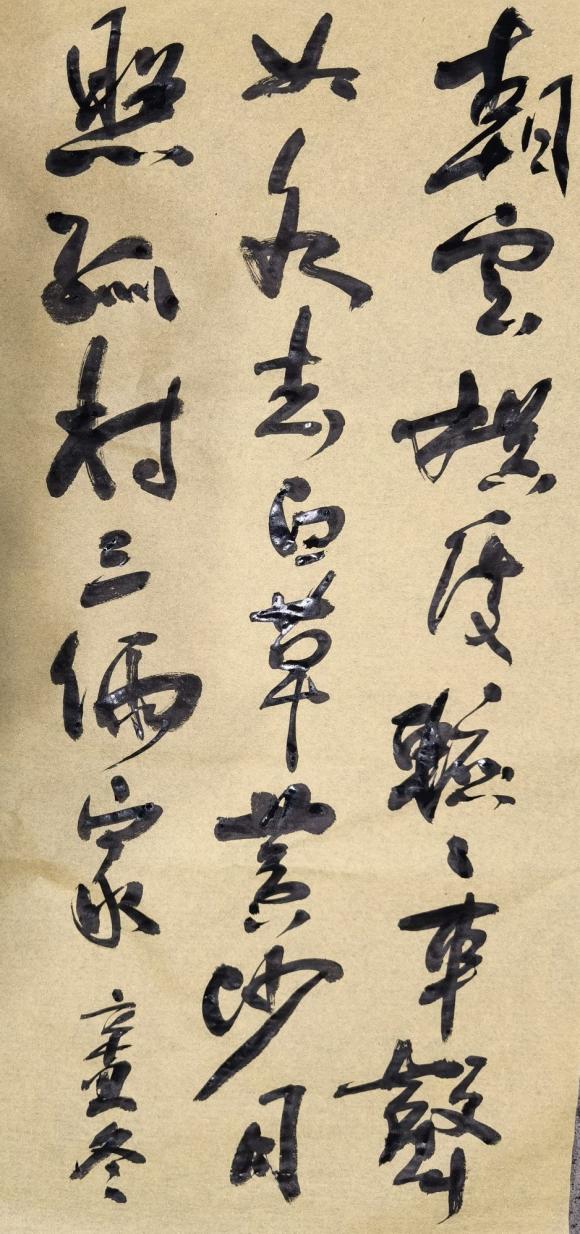 朝雲横度轆々車聲
如水去白草黄沙月
照孤村三倆家 冬